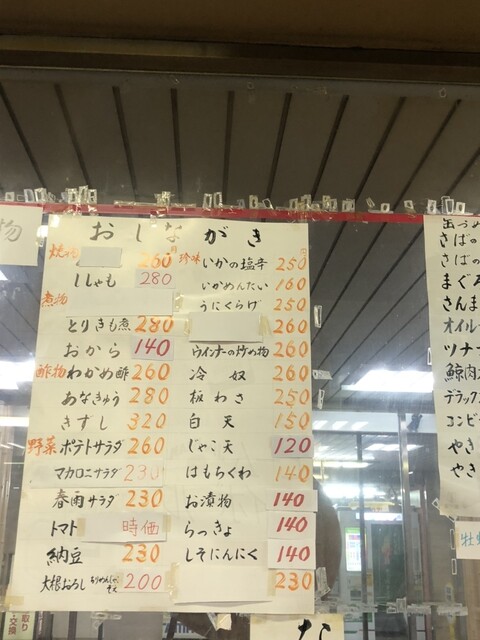 物
おしながき
焼もの 260円
ししゃも 280
煮物
とりきも煮 280
おから 140
酢物 わかめ酢 260
あなきゅう 280
きずし 320
野菜 ポテトサラダ 260
マカロニサラダ 230
春雨サラダ 230
トマト 時価
納豆 230
大根おろし ちりめんじゃこ 200
珍味 いかの塩辛 250円
いかめんたい 160
うにくらげ 250
260
ウインナーの炒め物 260
冷奴 260
板わさ 250
白天 150
じゃこ天 120
はもちくわ 140
お漬物 140
らっきょ 140
しそにんにく 140
230
缶づめ
さばの
さばの
まぐろ
さんま
オイル
ツナ
鯨肉
デラックス
コンビ
やき
やき
牡蠣
取り
交換
な